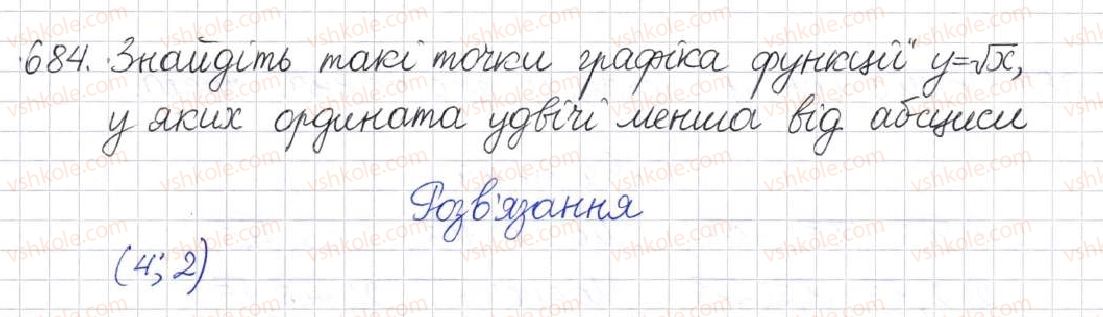 684. Знайдіть такі точки графіка функції y=√x,
у яких ордината удвічі менша від абсциси
Розв'язання
(4; 2)